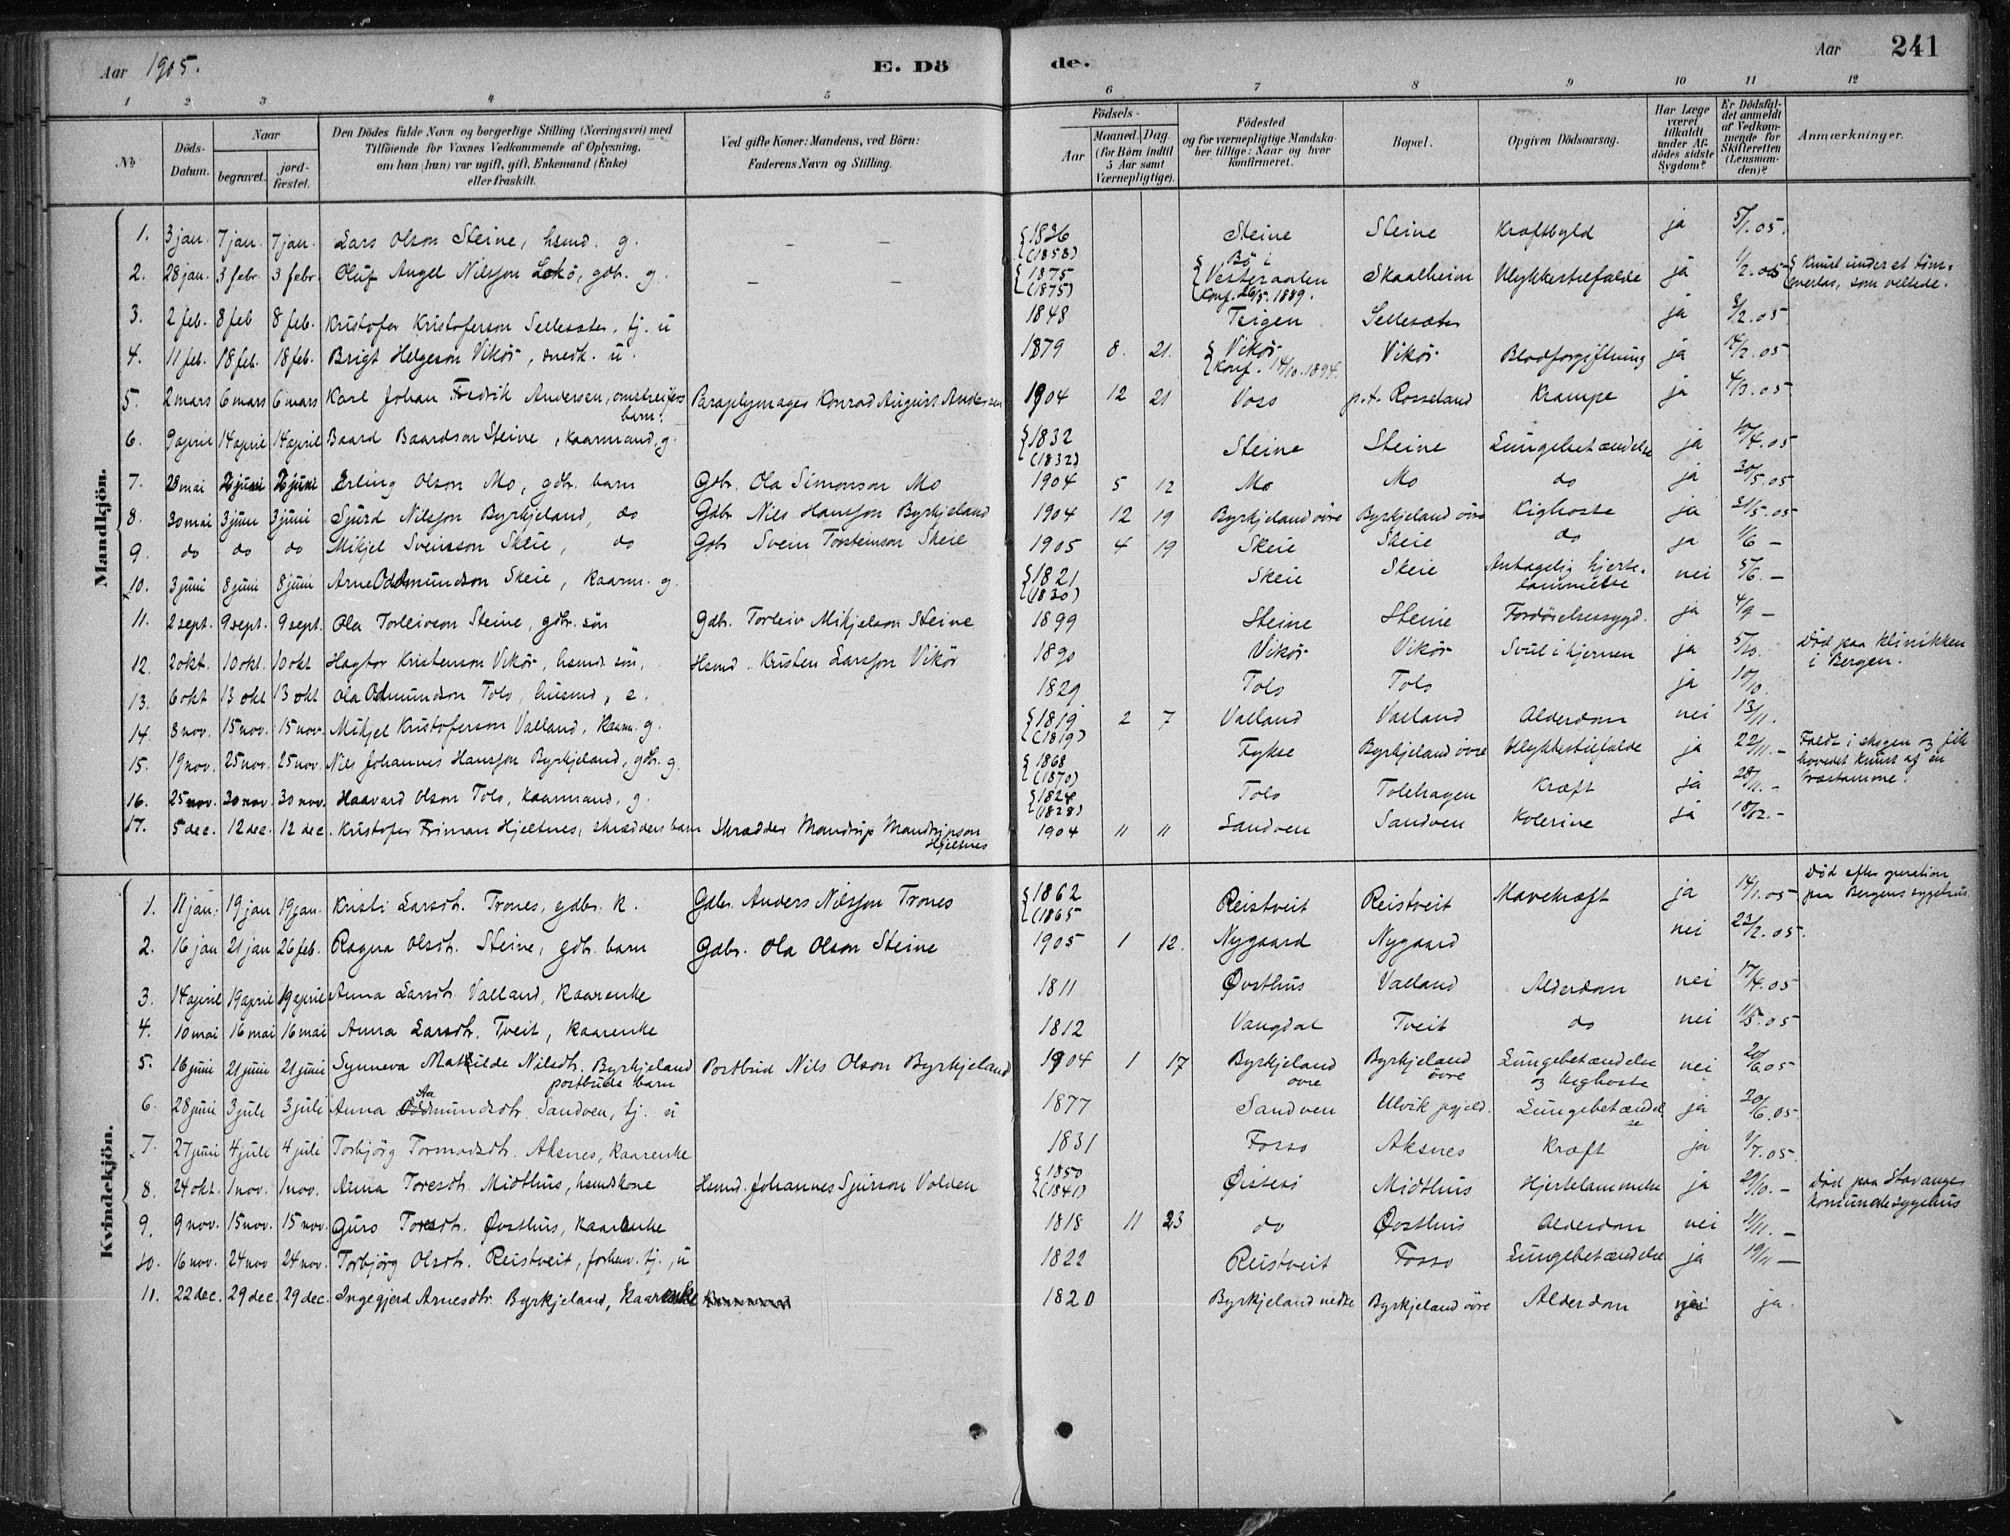 Aar 1905.
E. Dö
de.
Aar
241
1 2 3 4 5 6 7 8 9 10 11 12
No
Döds-Datum.
Naar
begravet.
jord-fæstet.
Den Dödes fulde Navn og borgerlige Stilling (Næringsvei) med
Tilföiende for Voxnes Vedkommende af Oplysning,
om han (hun) var ugift, gift, Enkemand (Enke)
eller fraskilt.
Ved gifte Koner: Mandens, ved Börn:
Faderens Navn og Stilling.
Födsels-
Aar
Maaned. Dag.
(for Börn indtil
5 Aar samt
Værnepligtige).
Födested
og for værnepligtige Mandska-
ber tillige: Naar og hvor
konfirmeret.
Bopæl.
Opgiven Dödsaarsag.
Har Læge
været
tilkaldt
under Af-
dödes sidste
Sygdom?
Er Dödsfal-
det anmeldt
af Vedkom-
mende for
Skifteretten
(Lensman-
den)?
Anmærkninger.
Mandkjön.
1. 3 jan. 7 jan. 7 jan. Lars Olson Steine, hsmd. g. – – 1836 (1858) Steine Steine Kræftbyld ja 5/1.05.
2. 28 jan. 3 febr. 3 febr. Oluf Angel Nilsson Lokö, gbr. g. – – 1875 (1875) Bö i Vesteraalen Konf. 26/5.1889. Skaalheim Ulykkestilfælde ja 1/2.05 Knust under et töm-
merlas, som veltede.
3. 2 feb. 8 feb 8 feb. Kristofer Kristoferson Sellesæter, tj. u 1848 Teigen Sellesæter ja 8/2.05.
4. 11 feb. 18 feb. 18 feb. Brigt Helgeson Vikör, snedk. u. 1879 8. 21. Vikör Konf. 14/10.1894. Vikör Blodforgiftning ja 14/2.05
5. 2 mars 6 mars 6 mars Karl Johan Fredrik Andersen, omstreifers barn. Paraplymager Konrad August Andersen 1904 12 21 Voss p.t. Rosseland Krampe ja 4/3.05
6. 9 april 14 april 14 april Baard Baardson Steine, kaarmand, g. 1832 (1832) Steine Steine Lungebetændelse ja 10/4.05
7. 28 mai 2 juni 2 juni Erling Olson Mo, gbr. barn Gbr. Ola Simonson Mo 1904 5 12 Mo Mo do ja 30/5.05
8. 30 mai 3 juni 3 juni Sjurd Nilsson Byrkjeland, do Gdbr Nils Hansson Byrkjeland 1904 12 19 Byrkjeland övre Byrkjeland övre Kighoste ja 31/5.05
9. do do do Mikjel Sveinson Skeie, do Gbr. Svein Torsteinson Skeie 1905 4 19 Skeie Skeie do ja 1/6 –
10. 3 juni 8 juni 8 juni Arne Oddmundson Skeie, kaarm. g. 1821 (1830) Skeie Skeie Antagelig hjerte-
lammelse nei 5/6.–
11. 2 sept. 9 sept. 9 sept. Ola Torleivson Steine, gbr. sön Gdbr. Torleiv Mikjelson Steine 1899 Steine Steine Fordöielsessygd. ja 4/9 –
12. 2 okt. 10 okt. 10 okt Hagtor Kristenson Vikör, hsmds sön, Hsmd. Kristen Larsson Vikör 1890 Vikör Vikör Svul i hjernen ja 5/10. Död paa klinikken
i Bergen.
13. 6 okt 13 okt 13 okt Ola Odmundson Tolo, husmd, e. 1829 Tolo Tolo ja 10/10.
14. 8 nov. 15 nov. 15 nov. Mikjel Kristoferson Valland, kaarm. g. 1819 (1819) 2 7 Valland Valland Alderdom nei 13/11.
15. 19 nov. 25 nov. 25 nov. Nils Johannes Hansson Byrkjeland, gbr. g. 1868 (1870) Fykse Byrkjeland övre Ulykkestilfælde ja 22/11.– Faldt i skogen og fik
hovedet knust af en
træstamme.
16. 25 nov. 30 nov 30 nov. Haavard Olson Tolo, kaarmand, g. 1824 (1828) Tolo Tolehagen Kræft ja 28/11.–
17. 5 dec. 12 dec. 12 dec. Kristofer Friman Hjeltnes, skrædders barn Skrædder Mandrup Mandrupson
Hjeltnes 1904 11 11 Sandven Sandven Kolerine ja 10/12.–
Kvindekjön.
1. 11 jan. 19 jan 19 jan. Kristi Larsdtr. Trones, gdbr. k. Gdbr. Anders Nilsson Trones 1862 (1865 Reistveit Reistveit Mavekræft ja 14/1.05 Död efter operation
paa Bergens sygehus
2. 16 jan 21 jan 26 feb. Ragna Olsdtr. Steine, gbr. barn Gdbr. Ola Olson Steine 1905 1 12. Nygaard Nygaard nei 23/2.05.
3. 14 april 19 april 19 april Anna Larsdtr Valland, kaarenke 1811 Övsthus Valland Alderdom nei 17/4.05
4. 10 mai 16 mai 16 mai Anna Larsdtr. Tveit, kaarenke 1812 Vangdal Tveit do nei 11/5.05
5. 16 juni 21 juni 21 juni Synneva Mathilde Nilsdtr. Byrkjeland
postbuds barn Postbud Nils Olson Byrkjeland 1904 1 17 Byrkjeland övre Byrkjeland övre Lungebetændelse
og kighoste nei 20/6.05
6. 28 juni 3 juli 3 juli Anna Aamundsdtr. Sandven, tj. u 1877 Sandven Ulvik pgjeld. Lungebetændel
se ja 30/6.05.
7. 27 juni 4 juli 4 juli Torbjörg Tormodsdtr. Aksnes, kaarenke 1831 Fosso Aksnes Kræft ja 1/7.05.
8. 24 okt. 1 nov. 1 nov. Anna Toresdtr. Midthus, hsmdskone Hsmd. Johannes Sjurson Volden 1850 (1841) Öistesö Midthus Hjertelammelse ja 29/10.– Död paa Stavanger
kommunesygehus
9. 9 nov. 15 nov. 15 nov. Guro Toresdtr. Övsthus, kaarenke 1818 11 23 do Övsthus Alderdom nei 11/11.–
10. 16 nov. 24 nov 24 nov. Torbjörg Olsdtr. Reistveit, forhenv. tj., u 1822 Reistveit Fosso Lungebetændelse ja 19/11 –
11. 22 dec. 29 dec. 29 dec. Ingegjerd Arnesdtr. Byrkjeland, kaarenke 1820 Byrkjeland nedre Byrkjeland övre Alderdom nei ja.